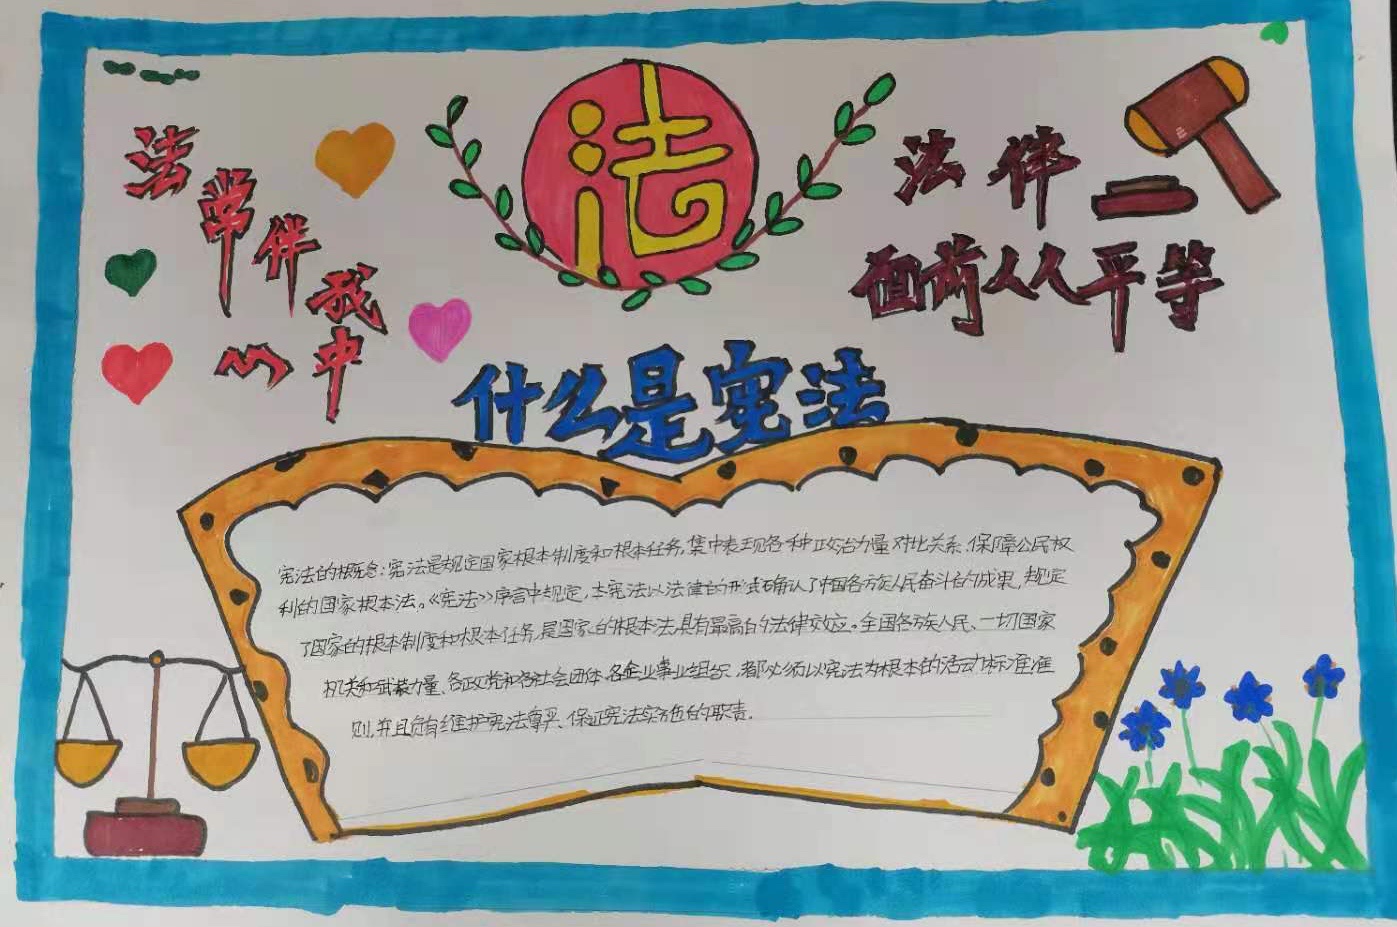 法
法常伴我
心中
法律
面前人人平等
什么是宪法
宪法的概念：宪法是规定国家根本制度和根本任务，集中表现各种政治力量对比关系、保障公民权
利的国家根本法。《宪法》序言中规定，本宪法以法律的形式确认了中国各方族人民奋斗的成果，规定
了国家的根本制度和根本任务，是国家的根本法，具有最高的法律效应。全国各方族人民、一切国家
机关和武装力量、各政党和各社会团体、各企业事业组织，都必须以宪法为根本的活动标准准
则，并且负有维护宪法尊严、保证宪法实施的职责。